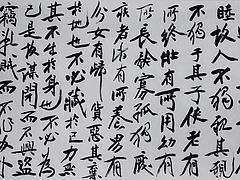 睦故人不獨親其親
不獨子其子使老有
所終壯有所用幼有
所長矜寡孤獨廢
疾者皆有所養男有
分女有歸貨惡其棄
於地也不必藏於己力惡
其不出於身也不必為
己是故謀閉而不興盜
竊亂賊而不作外